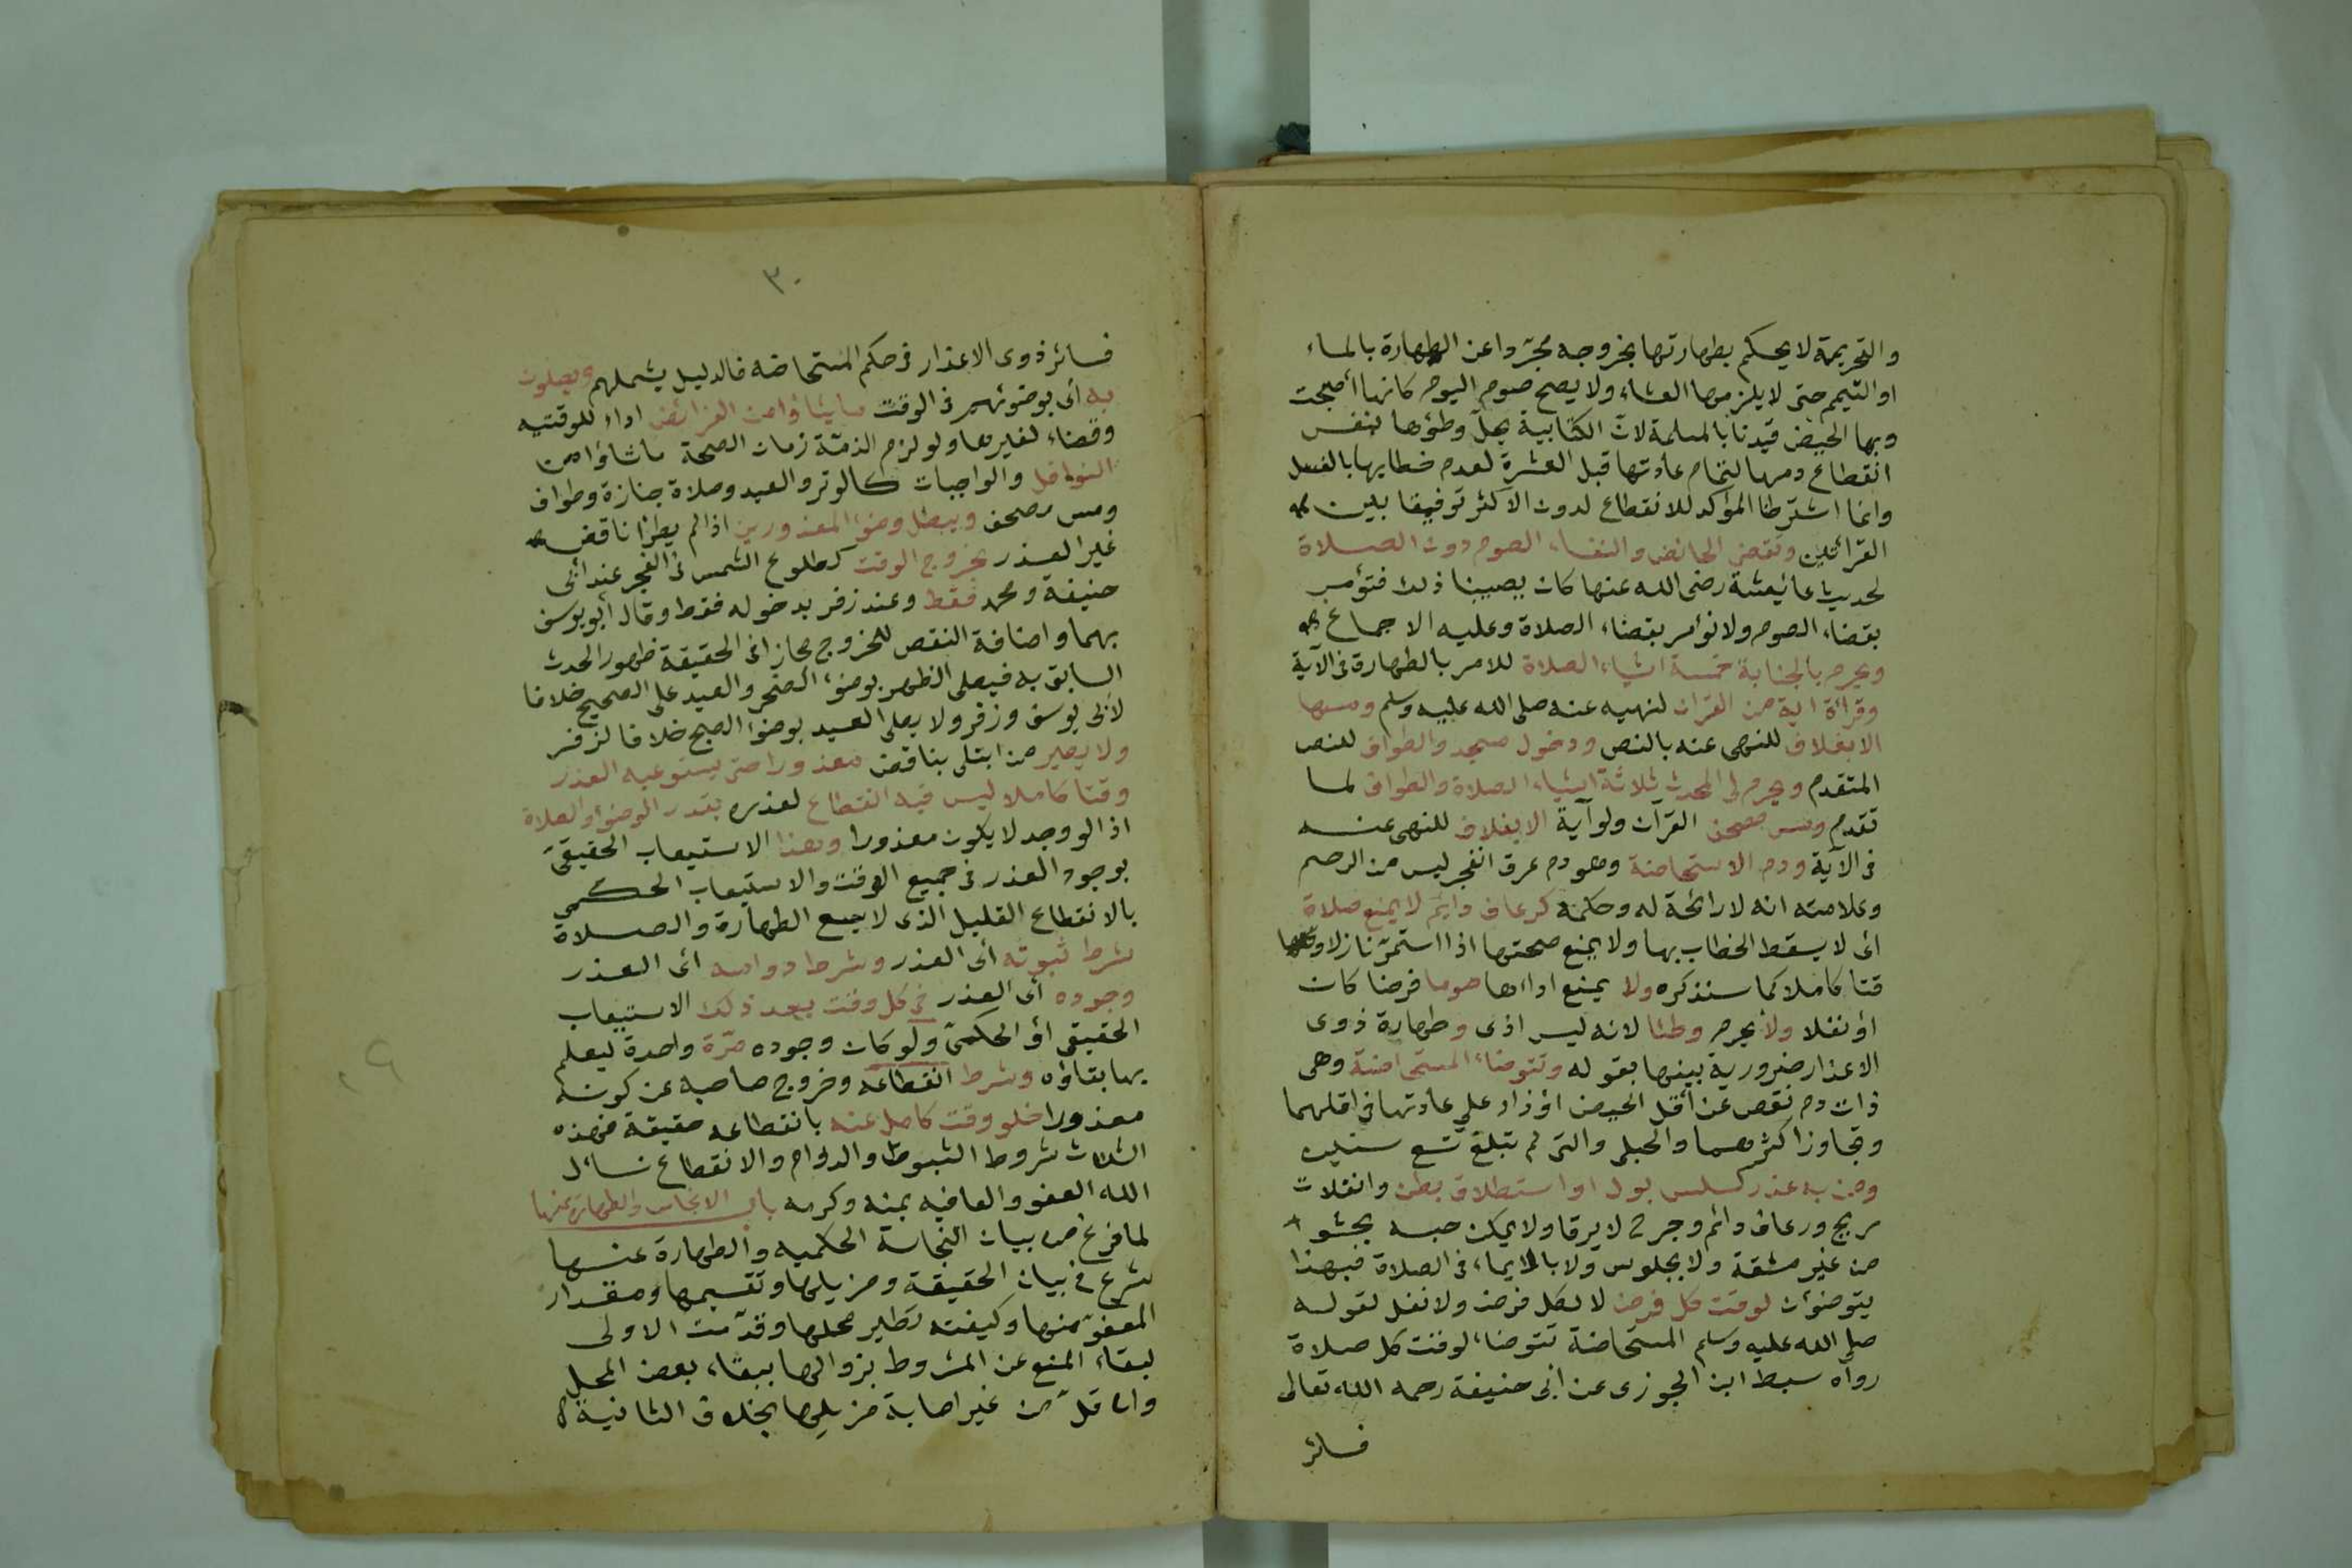 والتحريمة لا يحكم بطهارتها بخروجه مجردا عن الطهارة بالماء
او التيمم حتى لا يلزمها العشاء ولا يصح صوم اليوم كانها أصبحت
وبها الحيض قيدنا بالمسلمة لان الكتابية يحل وطؤها بنفس
انقطاع دمها لتمام عادتها قبل العشرة لعدم خطابها بالغسل
وانما اشترطنا المؤكد للانقطاع لدون الاكثر توفيقا بين
القرائتين وتقضى الحائض والنفساء الصوم دون الصلاة
لحديث عائشة رضى الله عنها كان يصيبنا ذلك فنؤمر
بقضاء الصوم ولا نؤمر بقضاء الصلاة وعليه الاجماع
ويحرم بالجنابة خمسة اشياء الصلاة للامر بالطهارة فى الآية
وقرأة اية من القران لنهيه عنه صلى الله عليه وسلم ومسها
الا بغلاف للنهى عنه بالنص ودخول مسجد والطواف للنص
المتقدم ويحرم على المحدث ثلاثة اشياء الصلاة والطواف لما
تقدم ومس مصحف القرآن ولو آية الا بغلاف للنهى عنه
فى الآية ودم الاستحاضة وهو دم عرق انفجر ليس من الرحم
وعلامته انه لا رائحة له وحكمه كرعاف دائم لا يمنع صلاة
اى لا يسقط الخطاب بها ولا يمنع صحتها اذا استمر نازلا و
قتا كاملا كما سنذكره ولا يمنع اداءها صوما فرضا كان
أو نفلا ولا يحرم وطئا لانه ليس اذى وطهارة ذوى
الاعذار ضرورية بينها بقوله وتتوضاء المستحاضة وهى
ذات دم نقص عن أقل الحيض او زاد على عادتها فى اقلهما
وتجاوز اكثرهما والحبلى والتى لم تبلغ تسع سنين
ومن به عذر كسلس بول او استطلاق بطن وانفلات
ريح ورعاف دائم وجرح لا يرقا ولا يمكن حبسه بحشو
من غير مشقة ولا بجلوس ولا بالايماء فى الصلاة فبهذا
يتوضؤن لوقت كل فرض لا لكل فرض ولا نفل لقوله
صلى الله عليه وسلم المستحاضة تتوضاء لوقت كل صلاة
رواه سبط ابن الجوزى عن ابى حنيفة رحمه الله تعالى
فسائر
٣٠
فسائر ذوى الاعذار فى حكم المستحاضه فالدليل يشملهم ويصلون
به أى بوضوئهم فى الوقت ما شاؤا من الفرائض اداء للوقتيه
وقضاء لغيرها ولو لزم الذمة زمان الصحة ما شاؤا من
النوافل والواجبات كالوتر والعيد وصلاة جنازة وطواف
ومس مصحف ويبطل وضؤ المعذورين اذا لم يطرأ ناقض
غير العذر بخروج الوقت كطلوع الشمس فى الفجر عند ابى
حنيفة ومحمد فقط وعند زفر بدخوله فقط وقال أبو يوسف
بهما واضافة النقض للخروج مجاز اذ الحقيقة ظهور الحدث
السابق به فيصلى الظهر بوضوء الضحى والعيد على الصحيح خلافا
لأبى يوسف وزفر ولا يصلى العيد بوضؤ الصبح خلافا لزفر
ولا يصير من ابتلى بناقض معذورا حتى يستوعبه العذر
وقتا كاملا ليس فيه انقطاع لعذره بقدر الوضؤ والصلاة
اذ لو وجد لا يكون معذورا وهذا الاستيعاب الحقيقى
بوجود العذر فى جميع الوقت والاستيعاب الحكمى
بالانقطاع القليل الذى لا يسع الطهارة والصلاة
شرط ثبوته أى العذر وشرط دوامه أى العذر
وجوده أى العذر فى كل وقت بعد ذلك الاستيعاب
الحقيقى أو الحكمى ولو كان وجوده مرة واحدة ليعلم
بها بقاؤه وشرط انقطاعه وخروج صاحبه عن كونه
معذورا خلو وقت كامل عنه بانقطاعه حقيقة فهذه
الثلاث شروط الثبوت والدوام والانقطاع نسأل
الله العفو والعافيه بمنه وكرمه باب الانجاس والطهارة عنها
لما فرغ من بيان النجاسة الحكميه والطهارة عنها
شرع فى بيان الحقيقة ومزيلها وتقسيمها ومقدار
المعفو منها وكيفته تطهير محلها وقدمت الاولى
لبقاء المنع عن المشروط بزوالها ببقاء بعض المحل
وان قل من غير اصابة مزيلها بخلاف الثانية